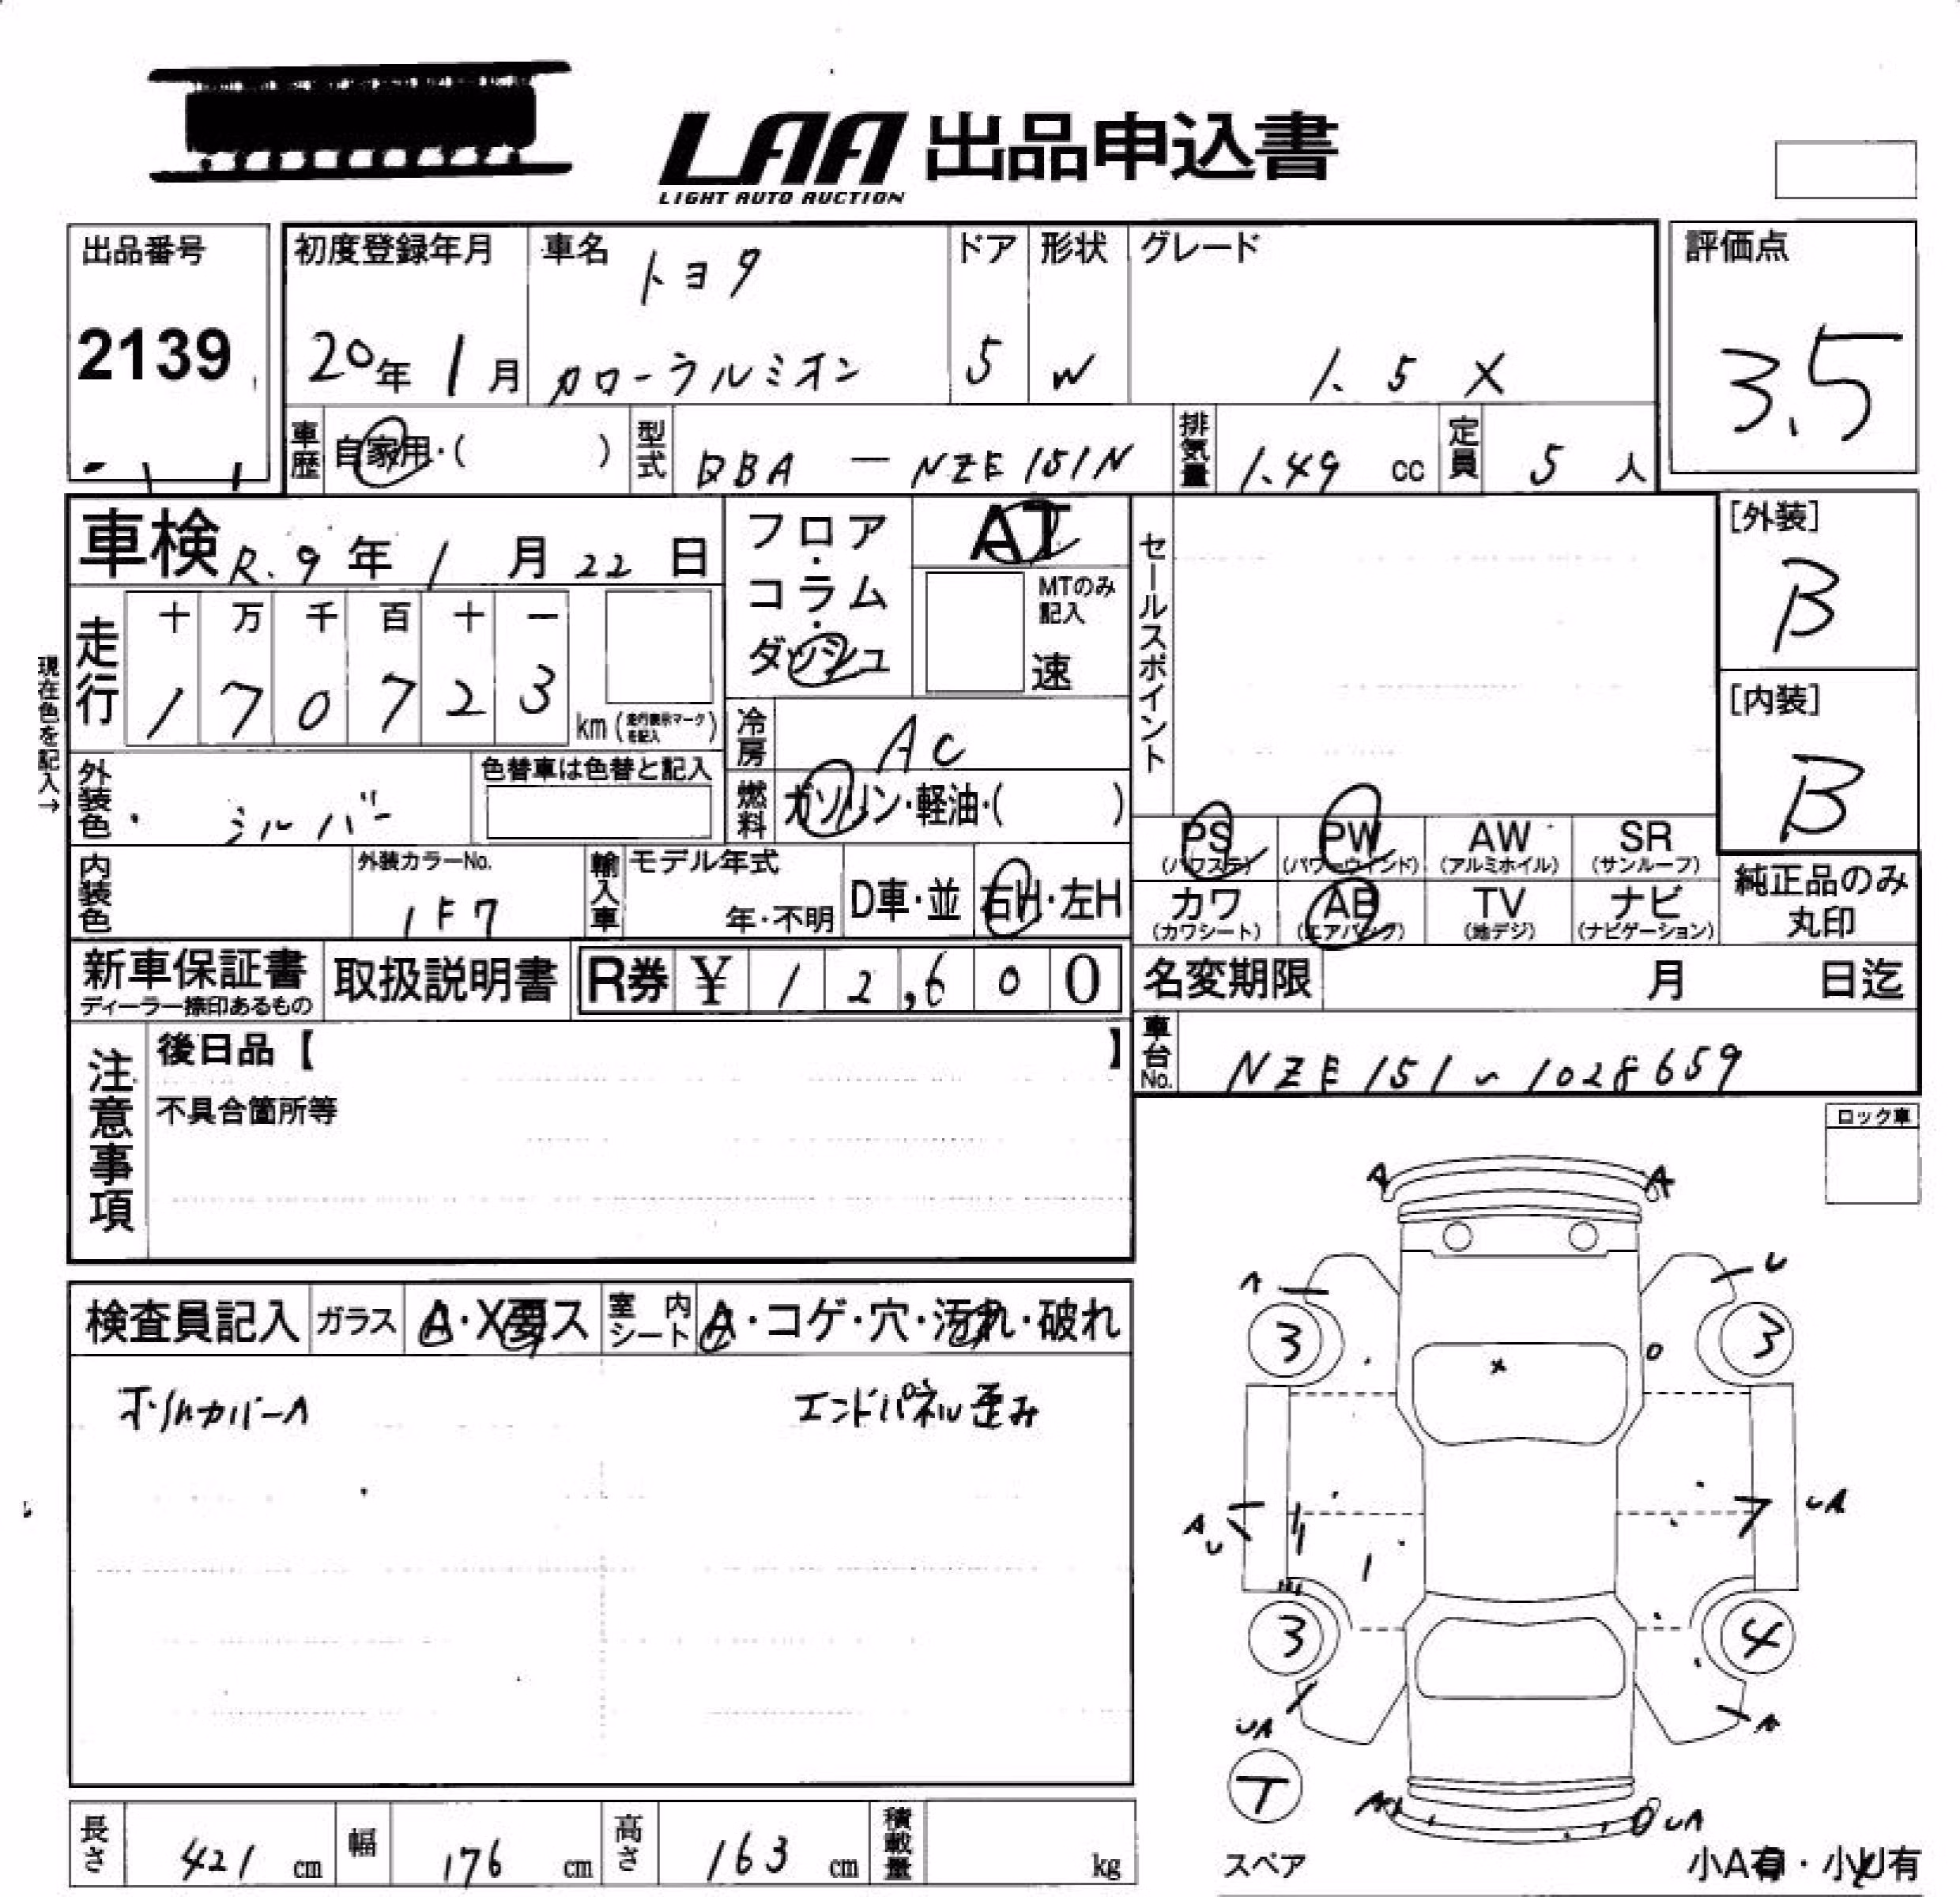 LAA 出品申込書
LIGHT AUTO AUCTION
出品番号
2139
初度登録年月
20年 1月
車名
トヨタ
カローラルミオン
ドア
5
形状
W
グレード
1.5 X
評価点
3.5
車歴
自家用・( )
型式
DBA — NZE151N
排気量
1.49 cc
定員
5 人
車検 R.9年 1月 22日
フロア・コラム・ダッシュ
AT
MTのみ記入
速
セールスポイント
[外装]
B
[内装]
B
現在色を記入→
走行
十 万 千 百 十 一
1 7 0 7 2 3
km (走行表示マークを記入)
冷房
AC
外装色
シルバー
色替車は色替と記入
燃料
ガソリン・軽油・( )
PS (パワステ)
PW (パワーウィンド)
AW (アルミホイル)
SR (サンルーフ)
カワ (カワシート)
AB (エアバック)
TV (地デジ)
ナビ (ナビゲーション)
純正品のみ丸印
内装色
外装カラーNo.
1F7
輸入車
モデル年式
年・不明
D車・並
右H・左H
新車保証書
ディーラー捺印あるもの
取扱説明書
R券 ¥ 12,600
名変期限 月 日迄
車台No.
NZE151-1028659
注意事項
後日品【 】
不具合箇所等
ロック車
検査員記入
ガラス
A・X要ス
室内シート
A・コゲ・穴・汚れ・破れ
ホイルカバーA
エンドパネル歪み
A A
A U
3 3
x
A U
UA
3 4
UA A
T
スペア
A UA
小A有・小U有
長さ
421 cm
幅
176 cm
高さ
163 cm
積載量
kg